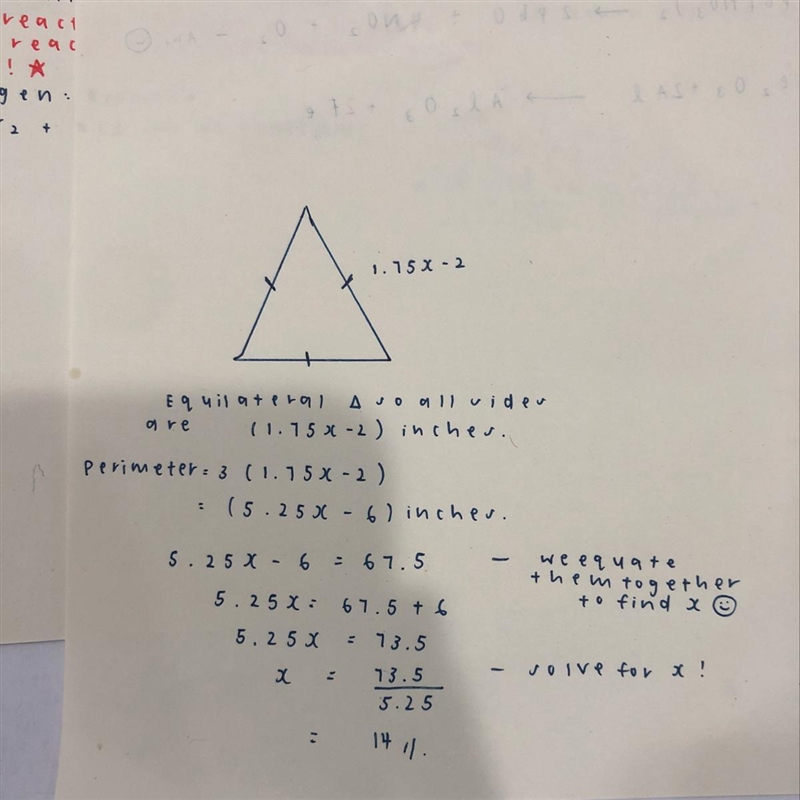 react
reac
! ☆
gen:
2 +
1.75x - 2
Equilateral Δ so all sides
are (1.75x - 2) inches.
Perimeter = 3 (1.75x - 2)
= (5.25x - 6) inches.
5.25x - 6 = 67.5 — we equate
them together
to find x ☺
5.25x = 67.5 + 6
5.25x = 73.5
x = 73.5 — solve for x!
5.25
= 14 //.